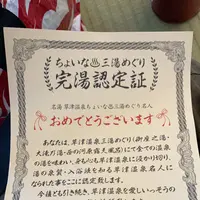 ちょいな♨三湯めぐり
完湯認定証
名湯 草津温泉ちょいな♨三湯めぐり名人
おめでとうございます
あなたは、草津温泉三湯めぐり(御座之湯・
大滝乃湯・西の河原露天風呂)にて全ての温泉
の湯を味わい、身も心も草津温泉に浸かり切り、
湯の泉質・入浴法を知る草津温泉名人に
なられた事をここに認定致します。
今後とも引き続き、草津温泉を愛しいっそうの